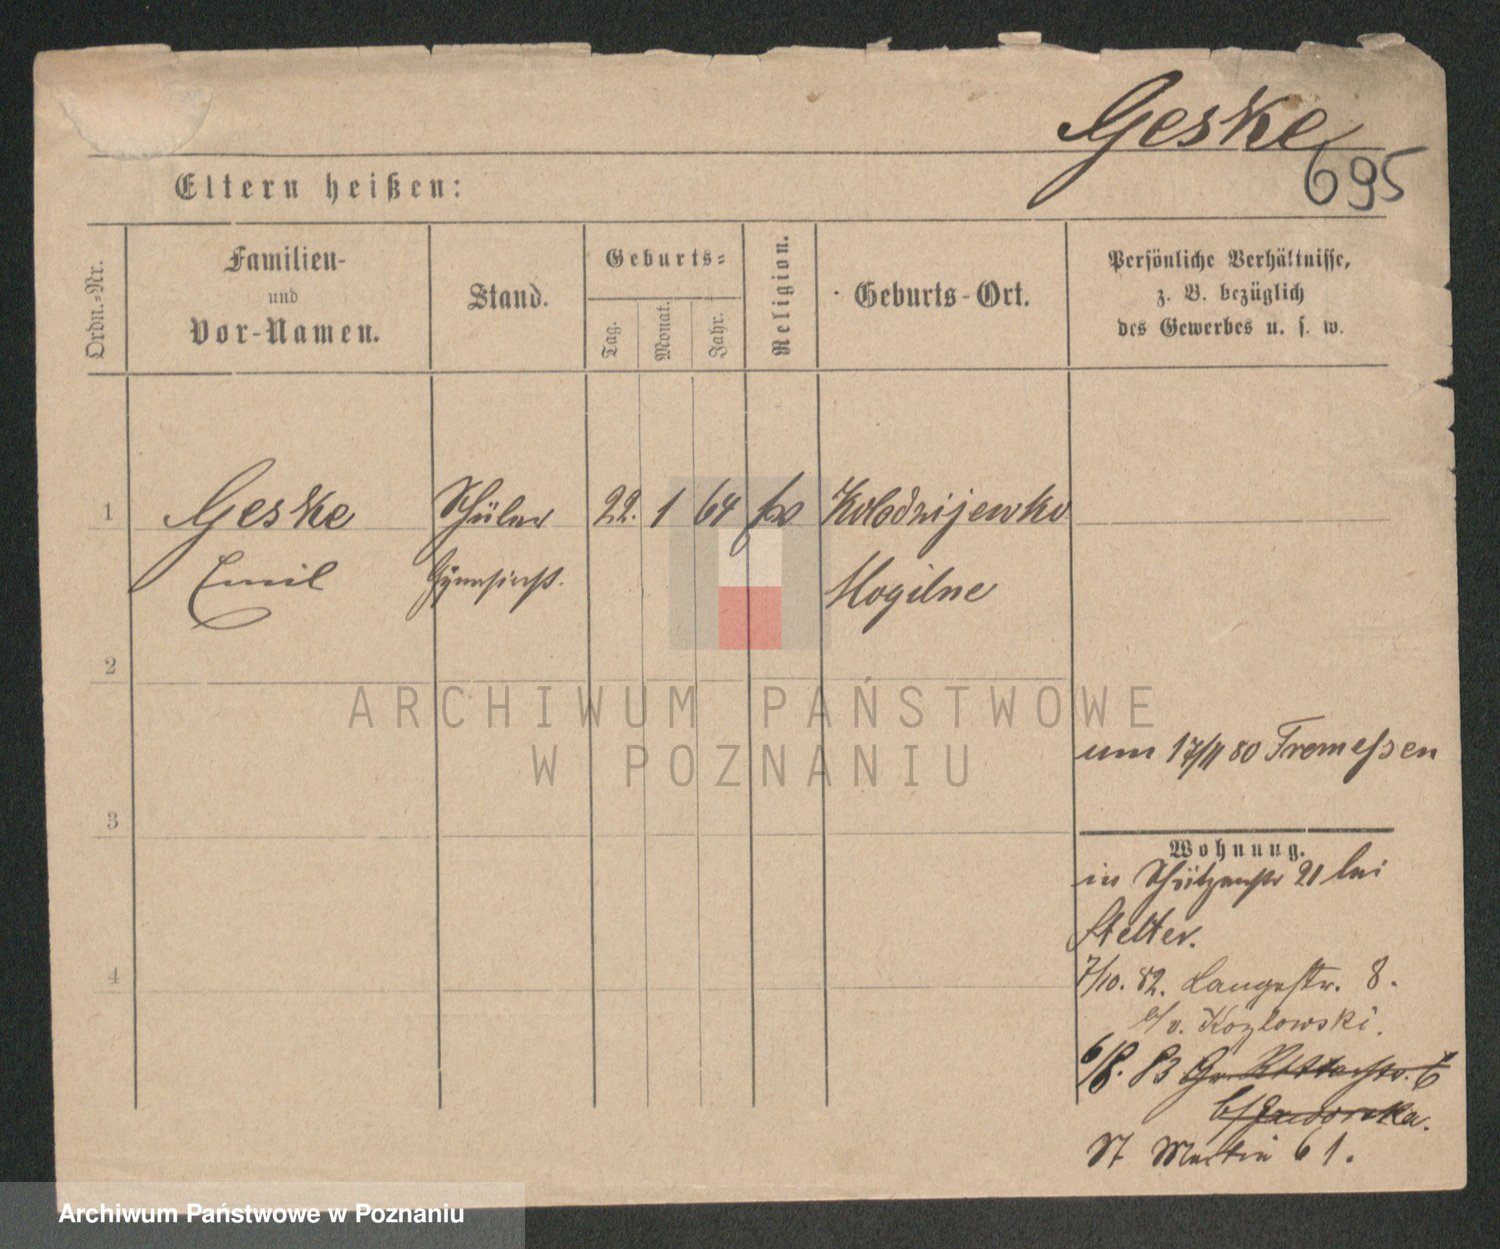 Geske
695
Eltern heißen:
Ordn.-Nr.
Familien-
und
Vor-Namen.
Stand.
Geburts-
Tag.
Monat.
Jahr.
Religion.
Geburts-Ort.
Persönliche Verhältnisse,
z. B. bezüglich
des Gewerbes u. s. w.
1 Geske Schüler 22. 1 64 Kolodzijewko
Emil Gymnasiast. Mogilno
2
ARCHIWUM PAŃSTWOWE
W POZNANIU
um 17/11 80 Tremessen
3
Wohnung.
in Schützenstr 21 bei
Stelter.
4
7/10. 82. Langestr. 8.
b/v. Kozlowski.
6/8. 83 Gr. Ritterstr.
St Martin 61.
Archiwum Państwowe w Poznaniu